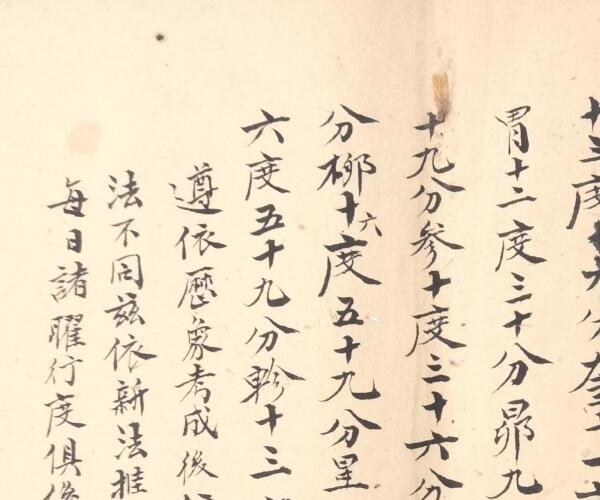 十三度
胃十二度三十分昴九
十九分参十度三十六分
分柳十六度五十九分星
六度五十九分軫十三
遵依歷象考成後
法不同兹依新法推
每日諸曜行度俱